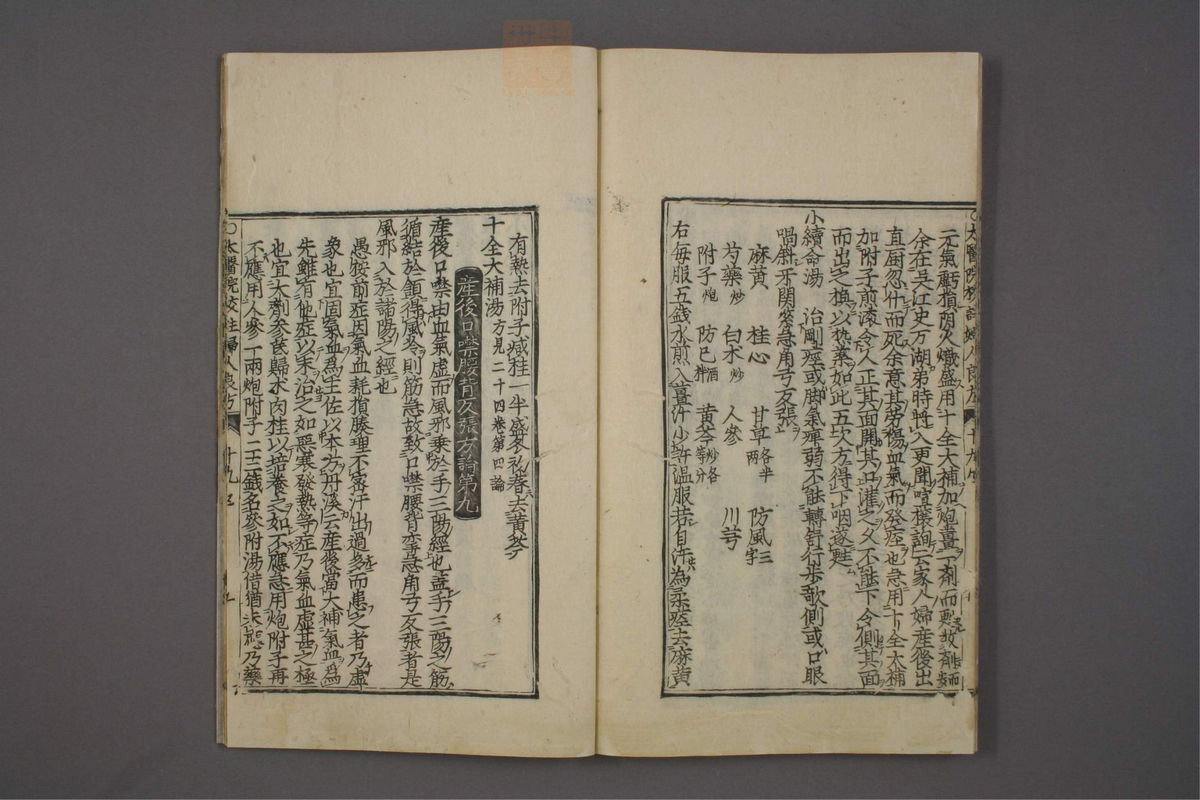 元氣虧損陰火熾盛用十全大補加炮薑一劑而
余在吳江史万湖弟時將入更聞喧嚷詢云家人婦産後出
直厨忽仆而死余意其勞傷血氣而發痓也急用十全大補
加附子煎滚令人正其面開其口灌之久不能下令側其面
而出之換以熱藥如此五次方得下咽遂甦
小續命湯 治剛痓或脚氣痺弱不能轉舒行歩歌側或口眼
喎斜牙関緊急角弓反張
麻黄 桂心 甘草各半兩 防風三字
芍藥炒 白术炒 人參 川芎
附子炮 防已酒拌 黄芩炒各等分
右毎服五錢水煎入薑汁少許温服若自汗為柔痓去麻黄
有熱去附子减桂一半盛冬初春去黄芩
十全大補湯方見二十四卷第四論
産後口噤腰背反張方論第九
産後口噤由血氣虚而風邪乗於手三陽經也盖手三陽之筋
循結於頷得風冷則筋急故致口噤腰背攣急角弓反張者是
風邪入於諸陽之經也
愚按前症因氣血耗損腠理不密汗出過多而患之者乃虚
象也宜固氣血爲主佐以本方丹溪云産後當大補氣血爲
先雖有他症以末治之如惡寒發熱等症乃氣血虚甚之極
也宜大劑参芪歸术肉桂以培養之如不應急用炮附子再
不應用人參一兩炮附子二三錢名參附湯倍猶未應乃藥
○太醫院校註婦人良方 十九